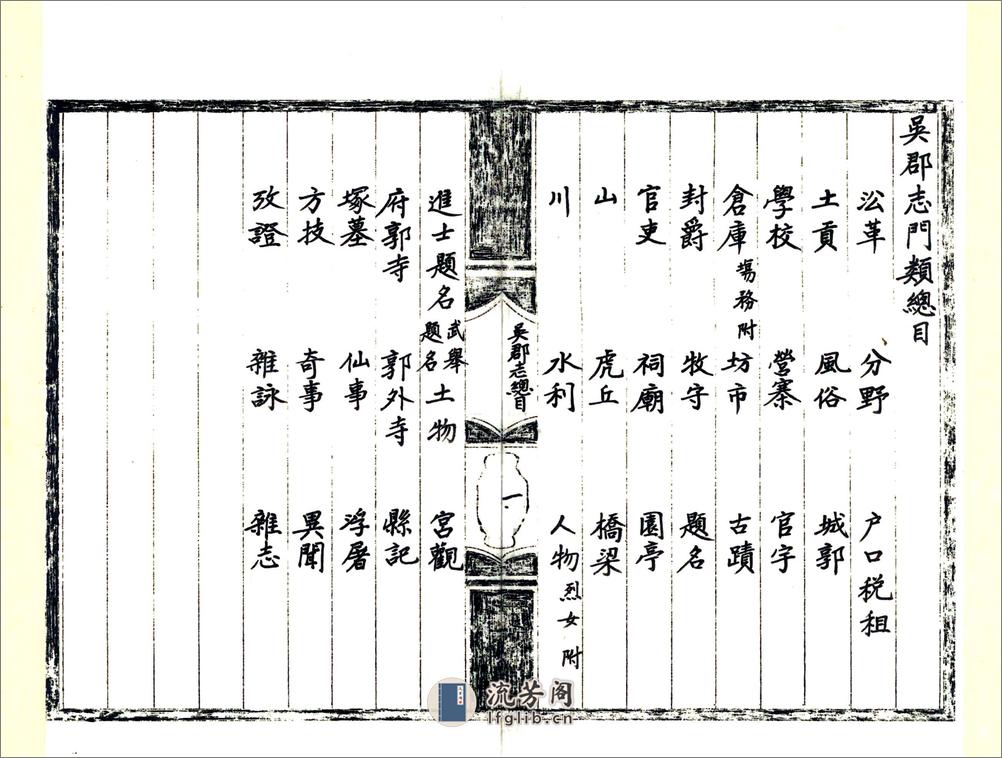 吳郡志門類總目
㳂革 分野 户口稅租
土貢 風俗 城郭
學校 營寨 官宇
倉庫 場務附 坊市 古蹟
封爵 牧守 題名
官吏 祠廟 園亭
山 虎丘 橋梁
川 水利 人物 烈女附
吳郡志總目
一
進士題名 武舉題名 土物 宮觀
府郭寺 郭外寺 縣記
塚墓 仙事 浮屠
方技 奇事 異聞
攷證 雜詠 雜志
流芳阁
lfglib.cn